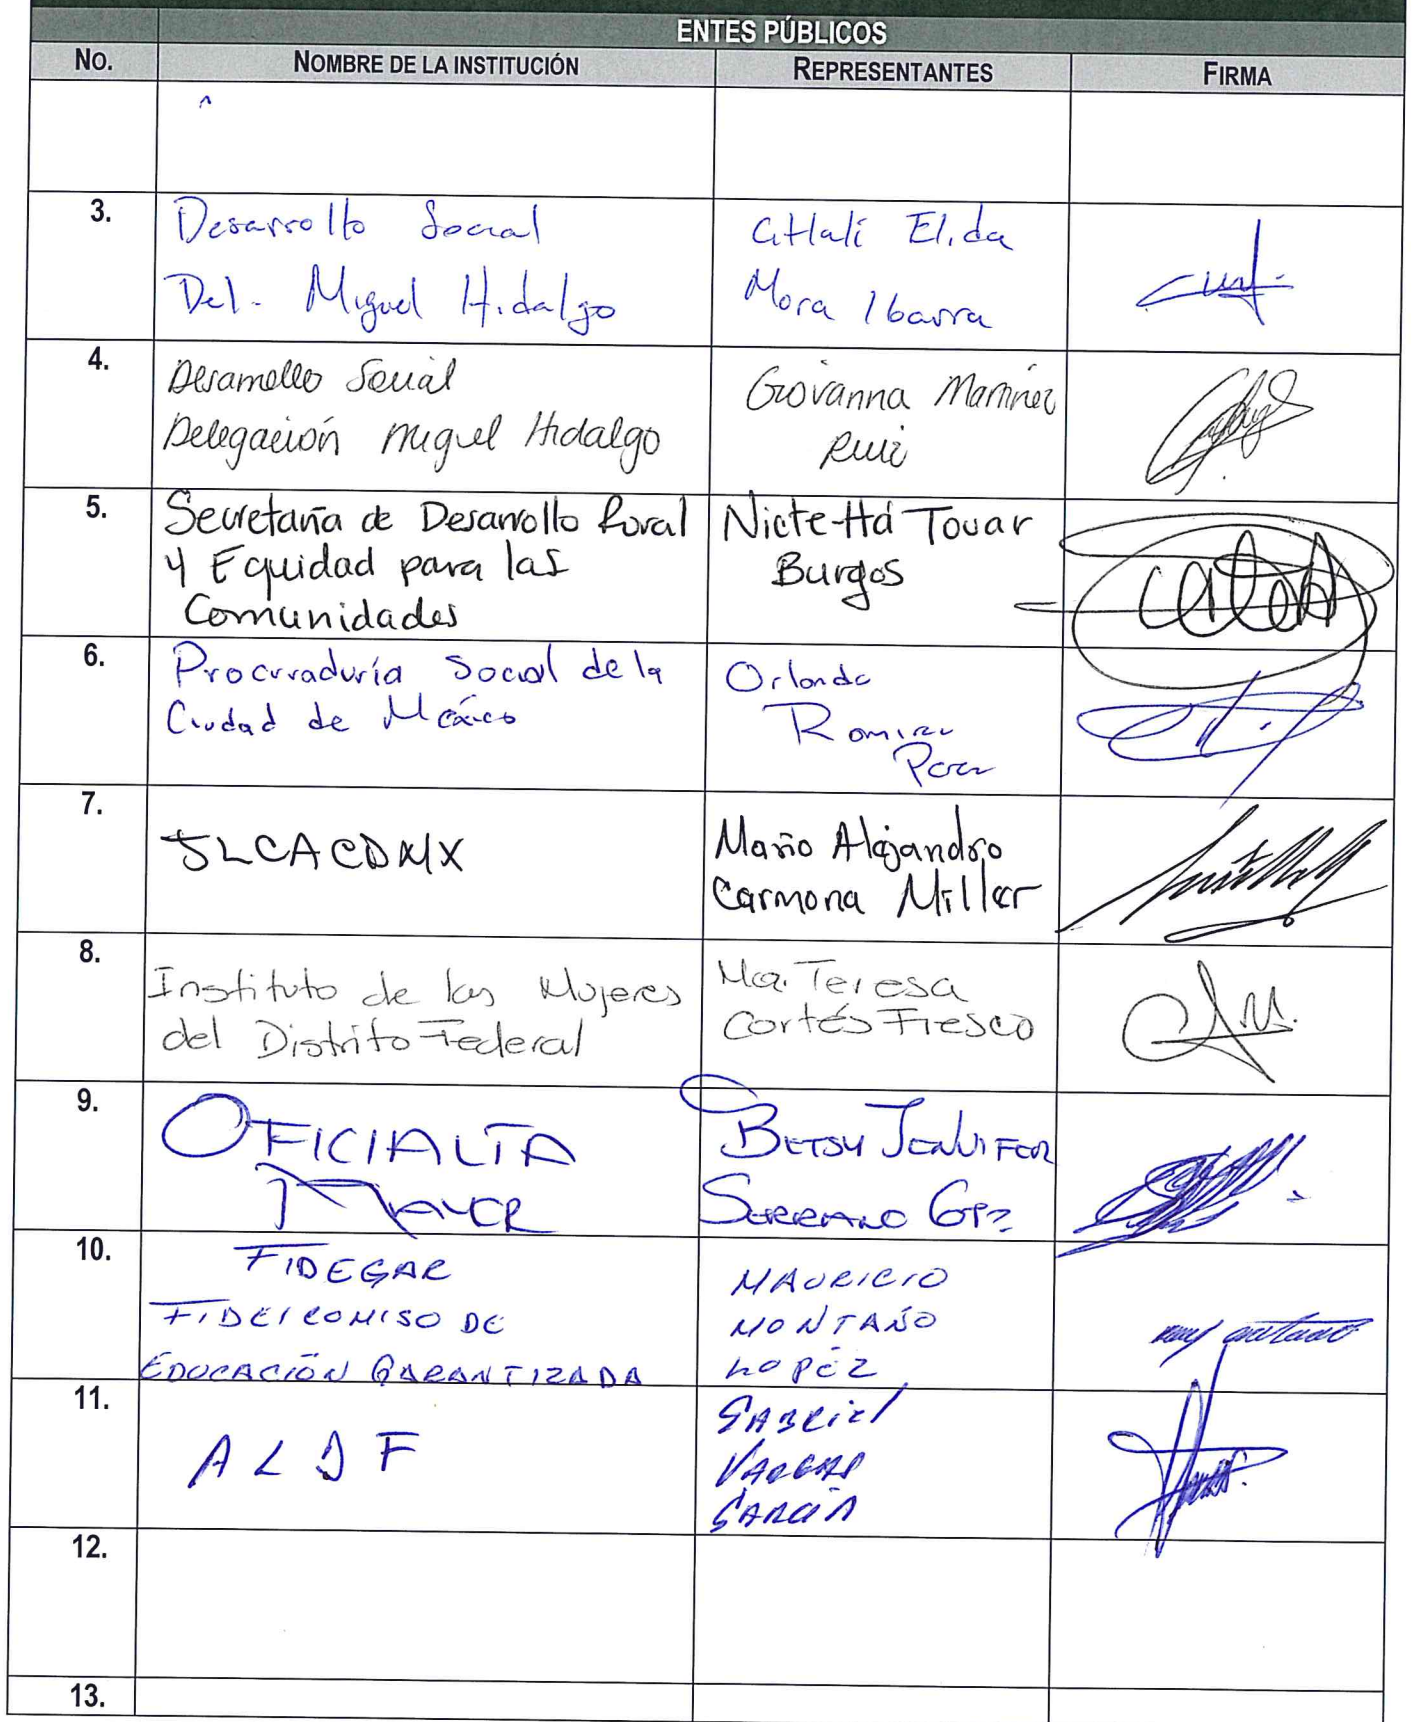 ENTES PÚBLICOS
NO. NOMBRE DE LA INSTITUCIÓN REPRESENTANTES FIRMA
3. Desarrollo Social
Del. Miguel Hidalgo
Citlali Elida
Mora Ibarra
4. Desarrollo Social
Delegación Miguel Hidalgo
Giovanna Martínez
Ruiz
5. Secretaría de Desarrollo Rural
y Equidad para las
Comunidades
Nicte-Há Tovar
Burgos
6. Procuraduría Social de la
Ciudad de México
Orlando
7. JLCACDMX
Mario Alejandro
Carmona Miller
8. Instituto de las Mujeres
del Distrito Federal
Ma. Teresa
Cortés Fresco
9. OFICIALÍA
MAYOR
BETSY JENNIFER
SERRANO
10. FIDEGAR
FIDEICOMISO DE
EDUCACIÓN GARANTIZADA
MAURICIO
MONTAÑO
LOPÉZ
11. ALDF
GABRIEL
VARGAS
GARCÍA
12.
13.